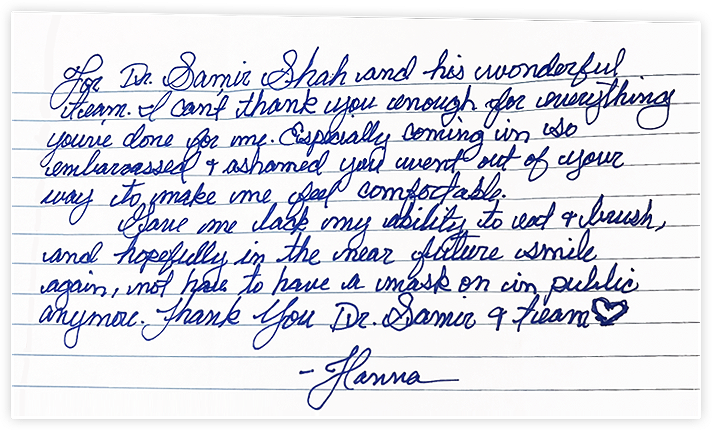 For Dr. Samir Shah and his wonderful
team. I can't thank you enough for everything
you've done for me. Especially coming in so
embarrassed & ashamed you went out of your
way to make me feel comfortable.
Gave me back my ability to eat & brush,
and hopefully in the near future smile
again, not have to have a mask on in public
anymore. Thank You Dr. Samir & team♡
- Hanna